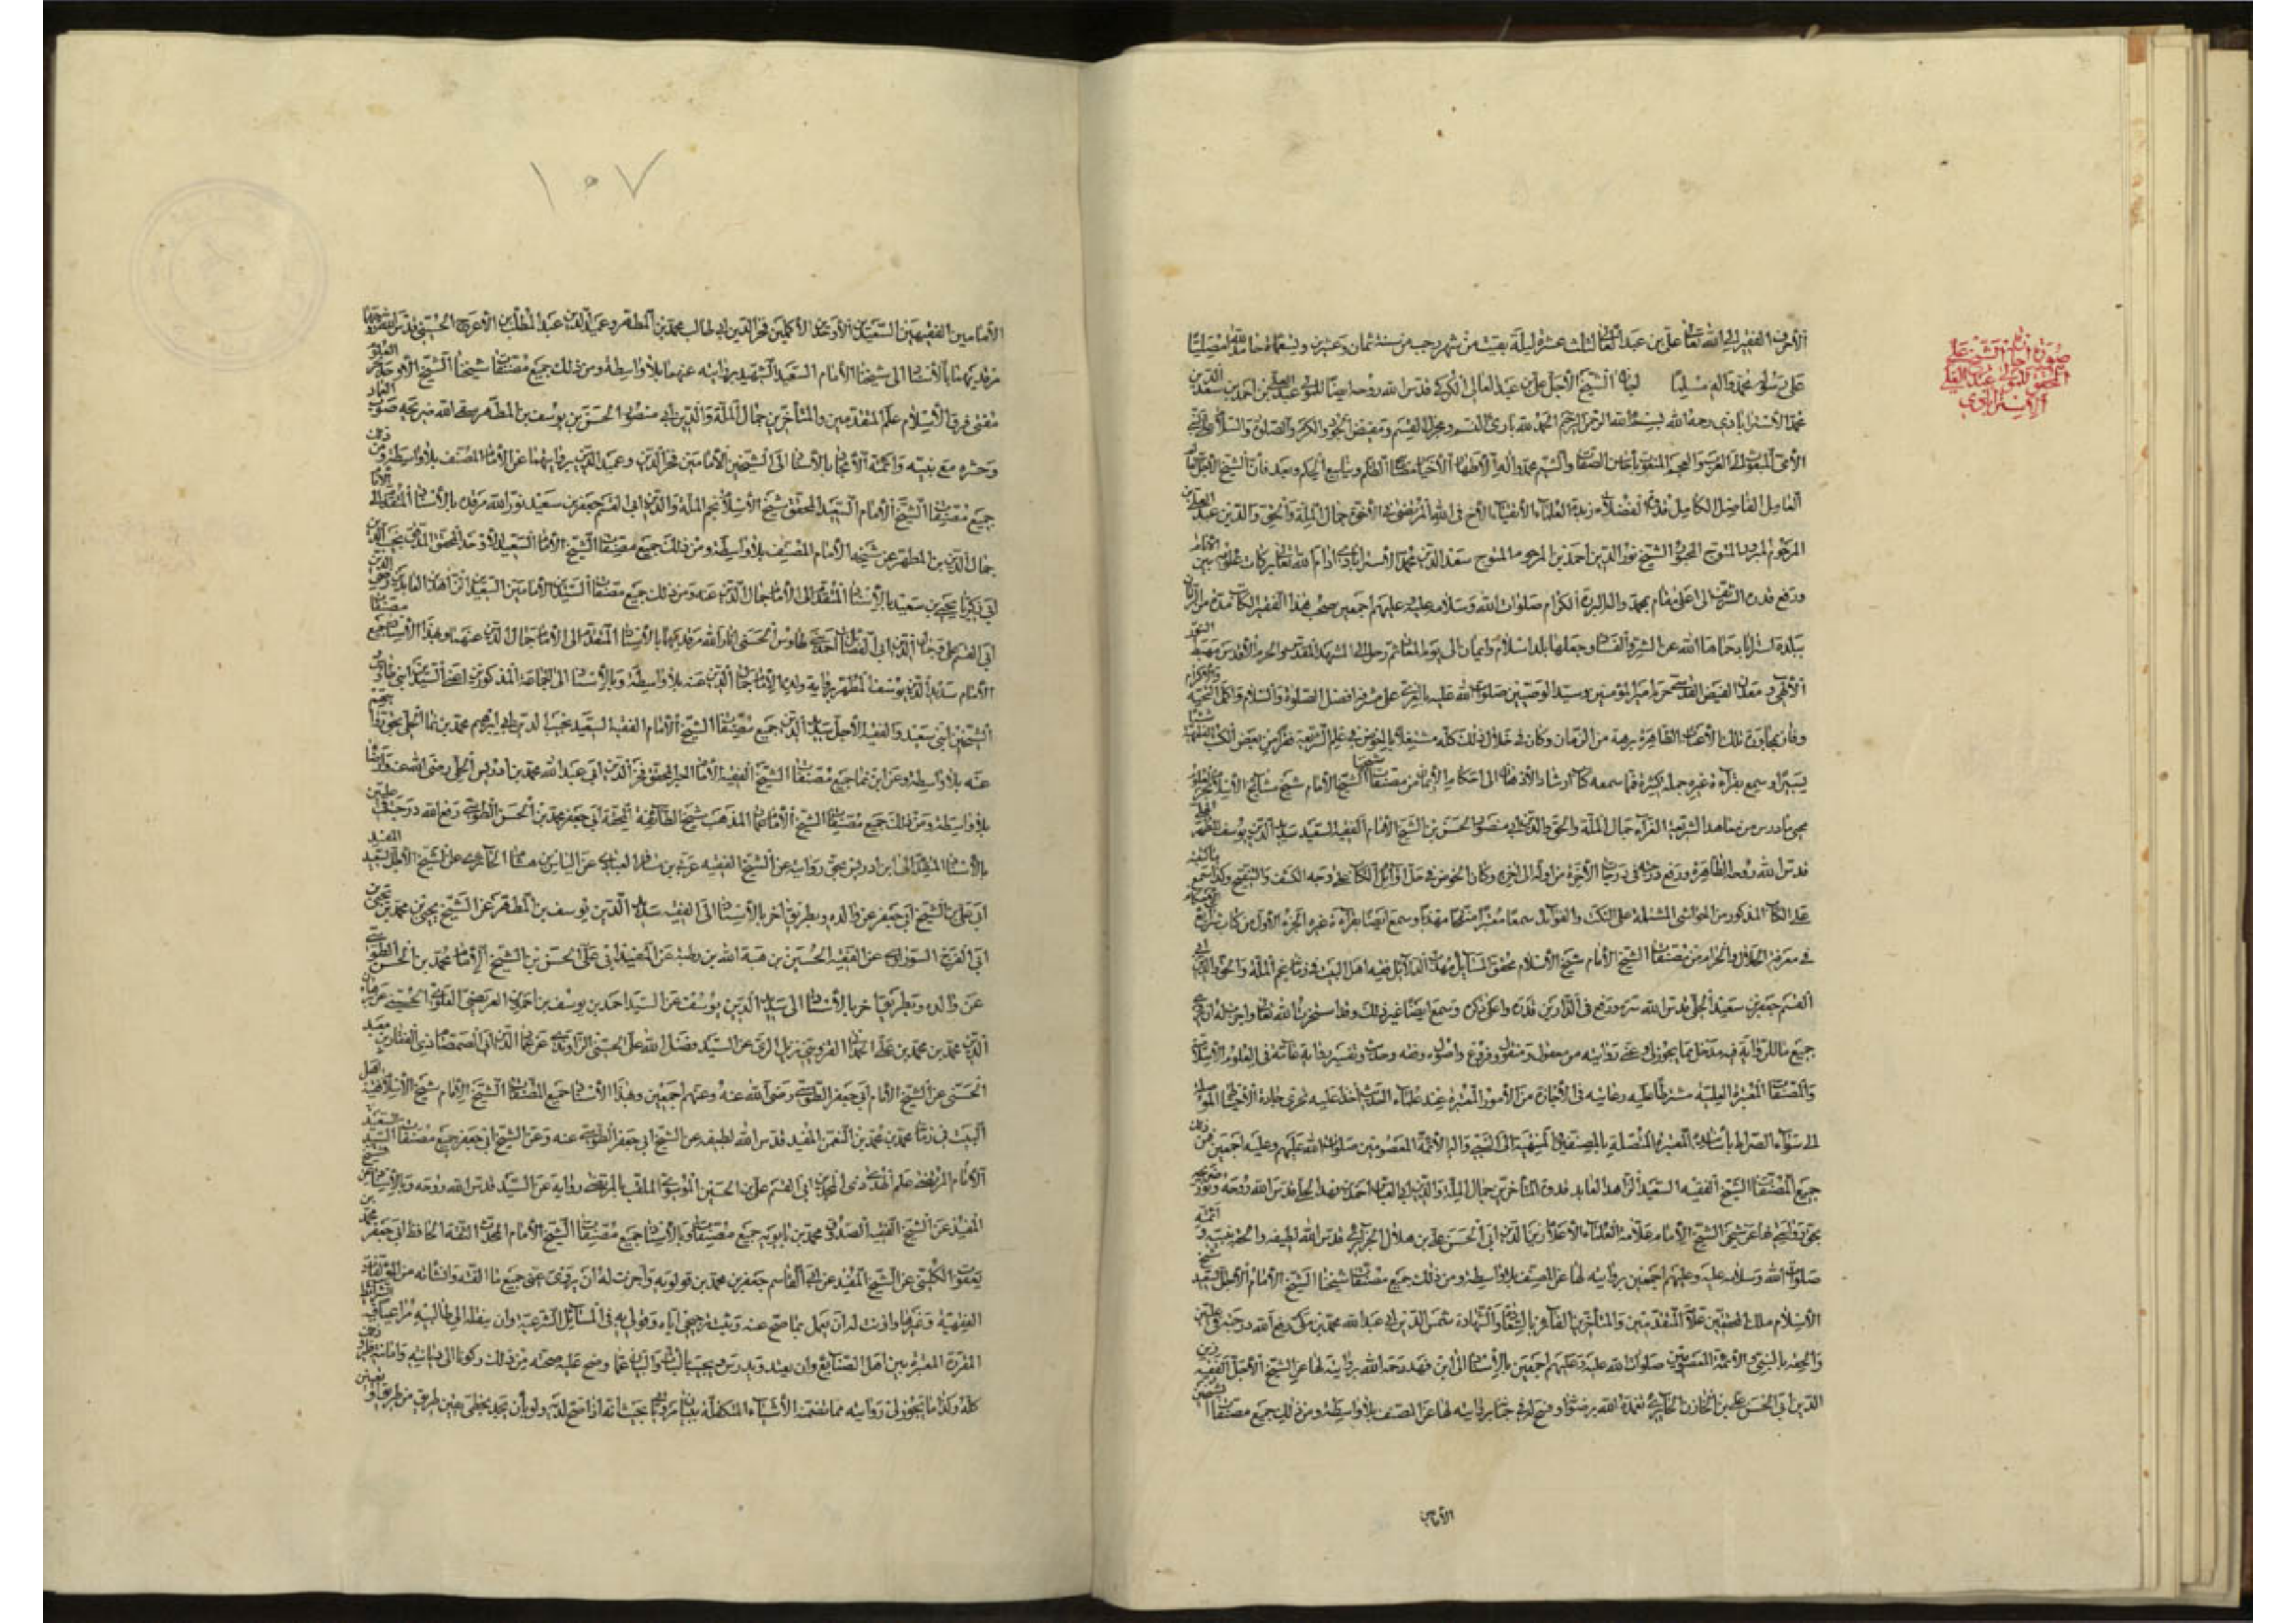 صورة اجازة الشيخ علي
المحقق للمولى عبد العلي
الاسترابادي
الأحرف الفقير الى الله تعالى علي بن عبد العالي لثلث عشرة ليلة بقيت من شهر رجب من سنة ثمان وعشرين وتسعمائة حامدا لله مصليا
على رسوله محمد وآله مسلما الشيخ الأجل علي بن عبد العالي الكركي قدس الله روحه ايضا للمولى عبد العلي بن احمد بن سعد الدين
محمد الاسترابادي رحمه الله بسم الله الرحمن الرحيم الحمد لله بارئ النسم ومجزل القسم ومفيض الجود والكرم والصلوة والسلام على
المبعوث الى العرب والعجم المنعوت بأحاسن الصفات والشيم محمد وآله الأطهار الأخيار الظلم وينابيع الحكم وبعد فان الشيخ الأجل
العامل الفاضل الكامل قدوة الفضلاء زبدة العلماء الأتقياء الأخ في الله المرتضى في الأخوة جمال الملة والحق والدين عبد العلي بن
المرحوم المبرور المتوج المحبور الشيخ نور الدين احمد بن المرحوم المتوج سعد الدين محمد الاسترابادي ادام الله تعالى بركات علومه بين الأنام
ورفع قدره الشريف الى اعلى مقام بمحمد وآله البررة الكرام صلوات الله وسلامه عليه وعليهم اجمعين صحب هذا الفقير الكاتب مدة من الزمان
ببلدة استراباد حماها الله عن الشر والفساد وجعلها بلد اسلام وايمان الى يوم المعاد ثم رحل الى المشهد المقدس والحرم الأقدس مهبط
ومعدن الفيض القدسي حرم امير المؤمنين وسيد الوصيين صلوات الله عليه بالغري على مشرفه افضل الصلوة والسلام واكمل التحية والاكرام
وفاز بمجاورة تلك الأعتاب الطاهرة برهة من الزمان وكان في خلال ذلك كله مشتغلا في علم الشريعة فقرأ من بعض الكتب الفقهية شيئا
يسيرا وسمع بقراءة غيره جملة كثيرة فما سمعه كتاب ارشاد الأذهان الى احكام الايمان من مصنفات شيخنا الشيخ الامام شيخ مشايخ الاسلام بحر العلوم
محيي ما درس من معاهد الشريعة الغراء جمال الملة والحق والدين ابي منصور الحسن بن الشيخ الامام الفقيه السعيد سديد الدين يوسف بن المطهر الحلي
قدس الله روحه الطاهرة ورفع درجته في درجات الآخرة من اوله الى آخره وكان الخوض في حل اوائل الكتاب على وجه الكشف والتنقيح
على الكتاب المذكور من الحواشي المشتملة على النكت والفوائد سمعا معتبرا منقحا مهذبا وسمع ايضا بقراءة غيره الجزء الأول من كتاب شرايع الاسلام
في معرفة الحلال والحرام من مصنفات الشيخ الامام شيخ الاسلام محقق المسايل مهذب الدلائل فقيه اهل البيت في زمانه نجم الملة والحق والدين ابي
القسم جعفر بن سعيد الحلي قدس الله سره ورفع في الدارين قدره واعلى ذكره وسمع ايضا غير ذلك وقد استخرت الله تعالى واجزت له ان يروي
جميع ما للرواية فيه مدخل مما يجوز لي عني روايته من معقول ومنقول وفروع واصول وفقه وحديث وتفسير رواية عامة في العلوم الاسلامية
والمصنفات المعتبرة العلية مشترطا عليه رعاية في الاجازة من الأمور المعتبرة عند علماء الحديث آخذا عليه تحري جادة الاحتياط الموصلة
الى سواء الصراط بأسانيدي المعتبرة المتصلة بالمصنفين المنتهية الى النبي وآله الأئمة المعصومين صلوات الله عليهم وعليه اجمعين فمن ذلك
جميع مصنفات الشيخ الفقيه السعيد الزاهد العابد قدوة المتأخرين جمال الملة والدين ابي العباس احمد بن فهد الحلي قدس الله روحه ونور ضريحه
بحق روايتي لها عن شيخي الشيخ الامام علامة العلماء الأعلام زين الدين ابي الحسن علي بن هلال الجزائري قدس الله لطيفه والحقه بنبيه وأئمته
صلوات الله وسلامه عليه وعليهم اجمعين بروايته لها عن المصنف بلا واسطة ومن ذلك جميع مصنفات شيخنا الشيخ الامام الأجل السعيد شيخ
الاسلام ملك المحققين علامة المتقدمين والمتأخرين الفائز بالسعادة والشهادة شمس الدين ابي عبد الله محمد بن مكي رفع الله درجته في عليين
والحقه بالنبي والأئمة المعصومين صلوات الله عليه وعليهم اجمعين بالاسناد الى ابن فهد رحمه الله بروايته لها عن الشيخ الأجل الفقيه زين
الدين ابي الحسن علي بن الخازن الحائري تغمده الله برضوانه بروايته لها عن المصنف بلا واسطة ومن ذلك جميع مصنفات الشيخين
الأمامين
١٠٧
الأمامين الفقيهين السعيدين الأوحدين الأكملين فخر الدين ابي طالب محمد بن المطهر وعميد الدين عبد المطلب بن الأعرج الحسيني قدس الله روحهما
مرقديهما بالاسناد الى شيخنا الامام السعيد الشهيد بروايته عنهما بلا واسطة ومن ذلك جميع مصنفات شيخنا الشيخ الأوحد بحر العلوم
مفتي فرق الاسلام علم المتقدمين والمتأخرين جمال الملة والدين ابي منصور الحسن بن يوسف بن المطهر سقى الله ضريحه صوب العهاد
وحشره مع نبيه والأئمة الأمجاد بالاسناد الى الشيخين الامامين فخر الدين وعميد الدين بروايتهما عن الامام المصنف بلا واسطة ومن ذلك
جميع مصنفات الشيخ الامام السعيد المحقق شيخ الاسلام نجم الملة والدين ابي القسم جعفر بن سعيد نور الله مرقده بالاسناد المتقدم الى الامام
جمال الدين بن المطهر عن شيخه الامام المصنف بلا واسطة ومن ذلك جميع مصنفات الشيخ الامام السعيد الأوحد المحقق المدقق نجيب الدين
ابي زكريا يحيى بن سعيد بالاسناد المتقدم الى الامام جمال الدين عنه ومن ذلك جميع مصنفات السيدين الامامين السعيدين الزاهدين العابدين رضي الدين
ابي القسم علي وجمال الدين ابي الفضائل احمد بني طاوس الحسني انار الله مرقديهما بالاسناد المتقدم الى الامام جمال الدين عنهما وبهذا الاسناد جميع مصنفات
الامام سديد الدين يوسف بن المطهر برواية ولده الامام جمال الدين عنه بلا واسطة وبالاسناد الى الجماعة المذكورين اعني السيدين ابني طاوس
الشيخين ابني سعيد والفقيه الأجل سديد الدين جميع مصنفات الشيخ الامام الفقيه السعيد نجيب الدين ابي ابرهيم محمد بن نما الحلي بحق روايتهم
عنه بلا واسطة وعن ابن نما جميع مصنفات الشيخ الفقيه الامام الحبر المحقق فخر الدين ابي عبد الله محمد بن ادريس الحلي رضي الله عنه
بلا واسطة ومن ذلك جميع مصنفات الشيخ الامام عماد المذهب شيخ الطائفة المحقة ابي جعفر محمد بن الحسن الطوسي رفع الله درجته في عليين
بالاسناد المتقدم الى ابن ادريس بحق روايته عن الشيخ الفقيه عربي بن مسافر العبادي عن الياس بن هشام الحائري عن الشيخ الأجل السعيد المفيد
ابي علي بن الشيخ ابي جعفر عن والده وبطريق آخر بالاسناد الى الفقيه سديد الدين يوسف بن المطهر عن الشيخ يحيى بن محمد بن يحيى بن
ابي الفرج السوراوي عن الفقيه الحسين بن هبة الله بن رطبة عن المفيد ابي علي الحسن بن الشيخ الامام محمد بن الحسن الطوسي
عن والده وبطريق آخر بالاسناد الى سديد الدين يوسف عن السيد احمد بن يوسف بن احمد العريضي العلوي الحسيني عن برهان
الدين محمد بن محمد بن علي الحمداني القزويني نزيل الري عن السيد فضل الله بن علي الحسني الراوندي عن عماد الدين ابي الصمصام ذي الفقار بن معبد
الحسني عن الشيخ الامام ابي جعفر الطوسي رضي الله عنه وعنهم اجمعين وبهذا الاسناد جميع مصنفات الشيخ الامام شيخ الاسلام فقيه اهل
البيت في زمانه محمد بن محمد بن النعمن المفيد قدس الله لطيفه عن الشيخ ابي جعفر الطوسي عنه وعن الشيخ ابي جعفر جميع مصنفات السيد السعيد
الامام المرتضى علم الهدى ذي المجدين ابي القسم علي بن الحسين الموسوي الملقب بالمرتضى رواية عن السيد قدس الله روحه وبالاسناد عن الشيخ
المفيد عن الشيخ الفقيه الصدوق محمد بن بابويه جميع مصنفاته وبالاسناد جميع مصنفات الشيخ الامام المحدث الثقة الحافظ ابي جعفر محمد بن
يعقوب الكليني عن الشيخ المفيد عن ابي القاسم جعفر بن محمد بن قولويه واجزت له ان يروي عني جميع ما الفته وانشأته من المؤلفات
الفقهية وغيرها واذنت له ان يعمل بما صح عنه وثبت ترجيحي اياه وقولي به في المسائل الشرعية وان ينقله الى طالبيه مراعيا فيه الشرائط
المقررة المعتبرة بين اهل الصناعة وان يفيد ويدرس وضح عليه صحته من ذلك ركونا الى ديانته وامانته
كله وكذا ما يجوز لي روايته مما تضمنه الأثبات المتكفلة ببيان مروياتي بحيث انه اذا صح لديه ولو بأن يجد بخطي تعيين طريق من طرق او